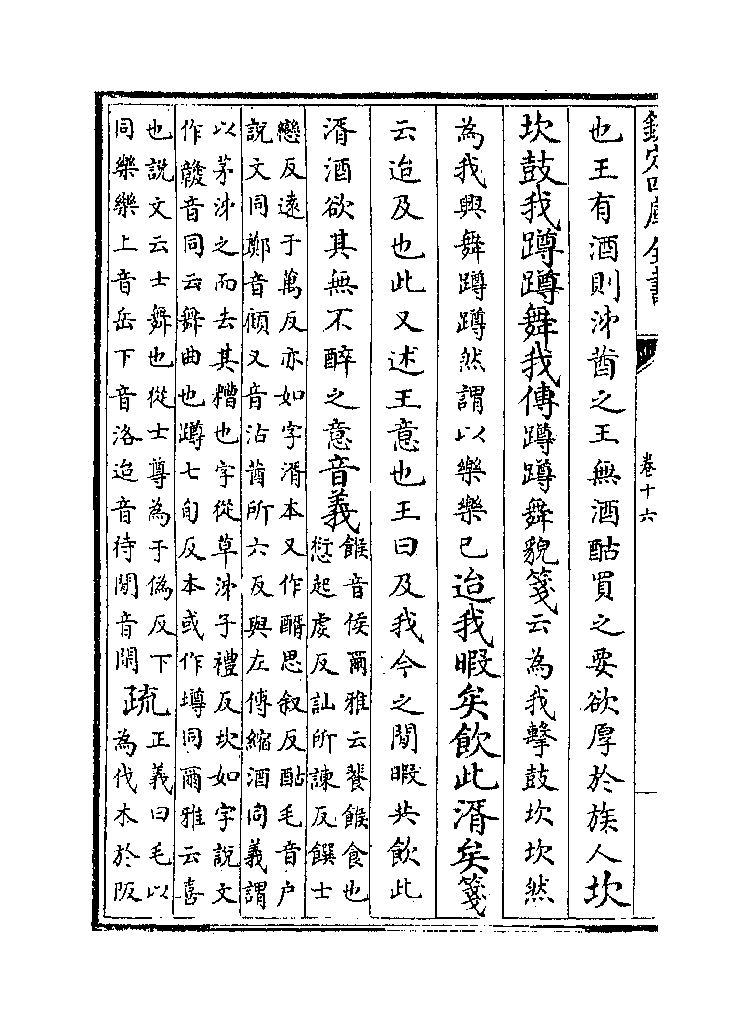 欽定四庫全書
卷十六
也王有酒則泲莤之王無酒酤買之要欲厚於族人坎
坎鼓我蹲蹲舞我傳蹲蹲舞貌箋云為我擊鼓坎坎然
為我興舞蹲蹲然謂以樂樂已迨我暇矣飲此湑矣箋
云迨及也此又述王意也王曰及我今之閒暇共飲此
湑酒欲其無不醉之意音義
餱音侯爾雅云餐餱食也
愆起虔反訕所諫反饌士
戀反遠于萬反亦如字湑本又作醑思叙反酤毛音户
說文同鄭音顧又音沽莤所六反與左傳縮酒同義謂
以茅泲之而去其糟也字從草泲子禮反坎如字說文
作竷音同云舞曲也蹲七旬反本或作墫同爾雅云喜
也說文云士舞也從士尊為于偽反下
同樂樂上音岳下音洛迨音待閒音閑
疏
正義曰毛以
為伐木於阪